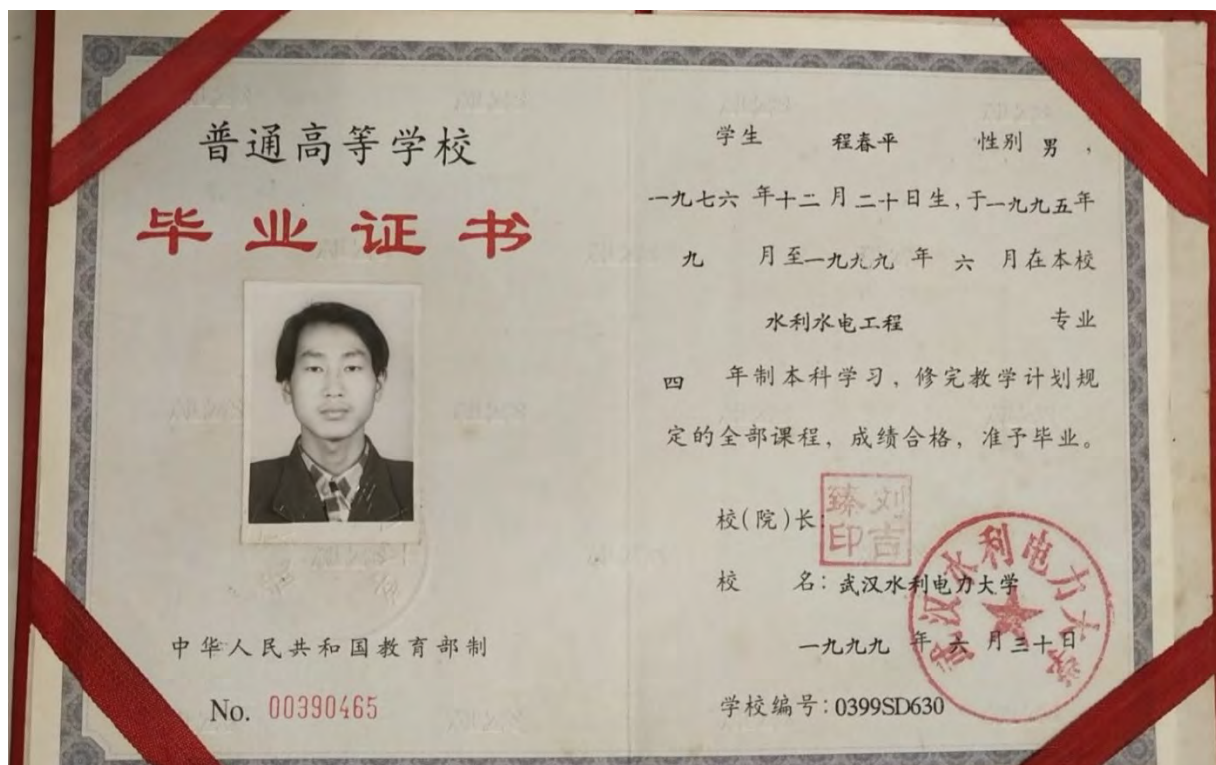 普通高等学校
毕业证书
中华人民共和国教育部制
No. 00390465
学生 程春平 性别 男，
一九七六 年十二月二十日生，于一九九五年
九 月至一九九九 年 六 月在本校
水利水电工程 专业
四 年制本科学习，修完教学计划规
定的全部课程，成绩合格，准予毕业。
校(院)长：
刘吉臻印
校 名：武汉水利电力大学
一九九九 年 六 月三十日
武汉水利电力大学
学校编号：0399SD630